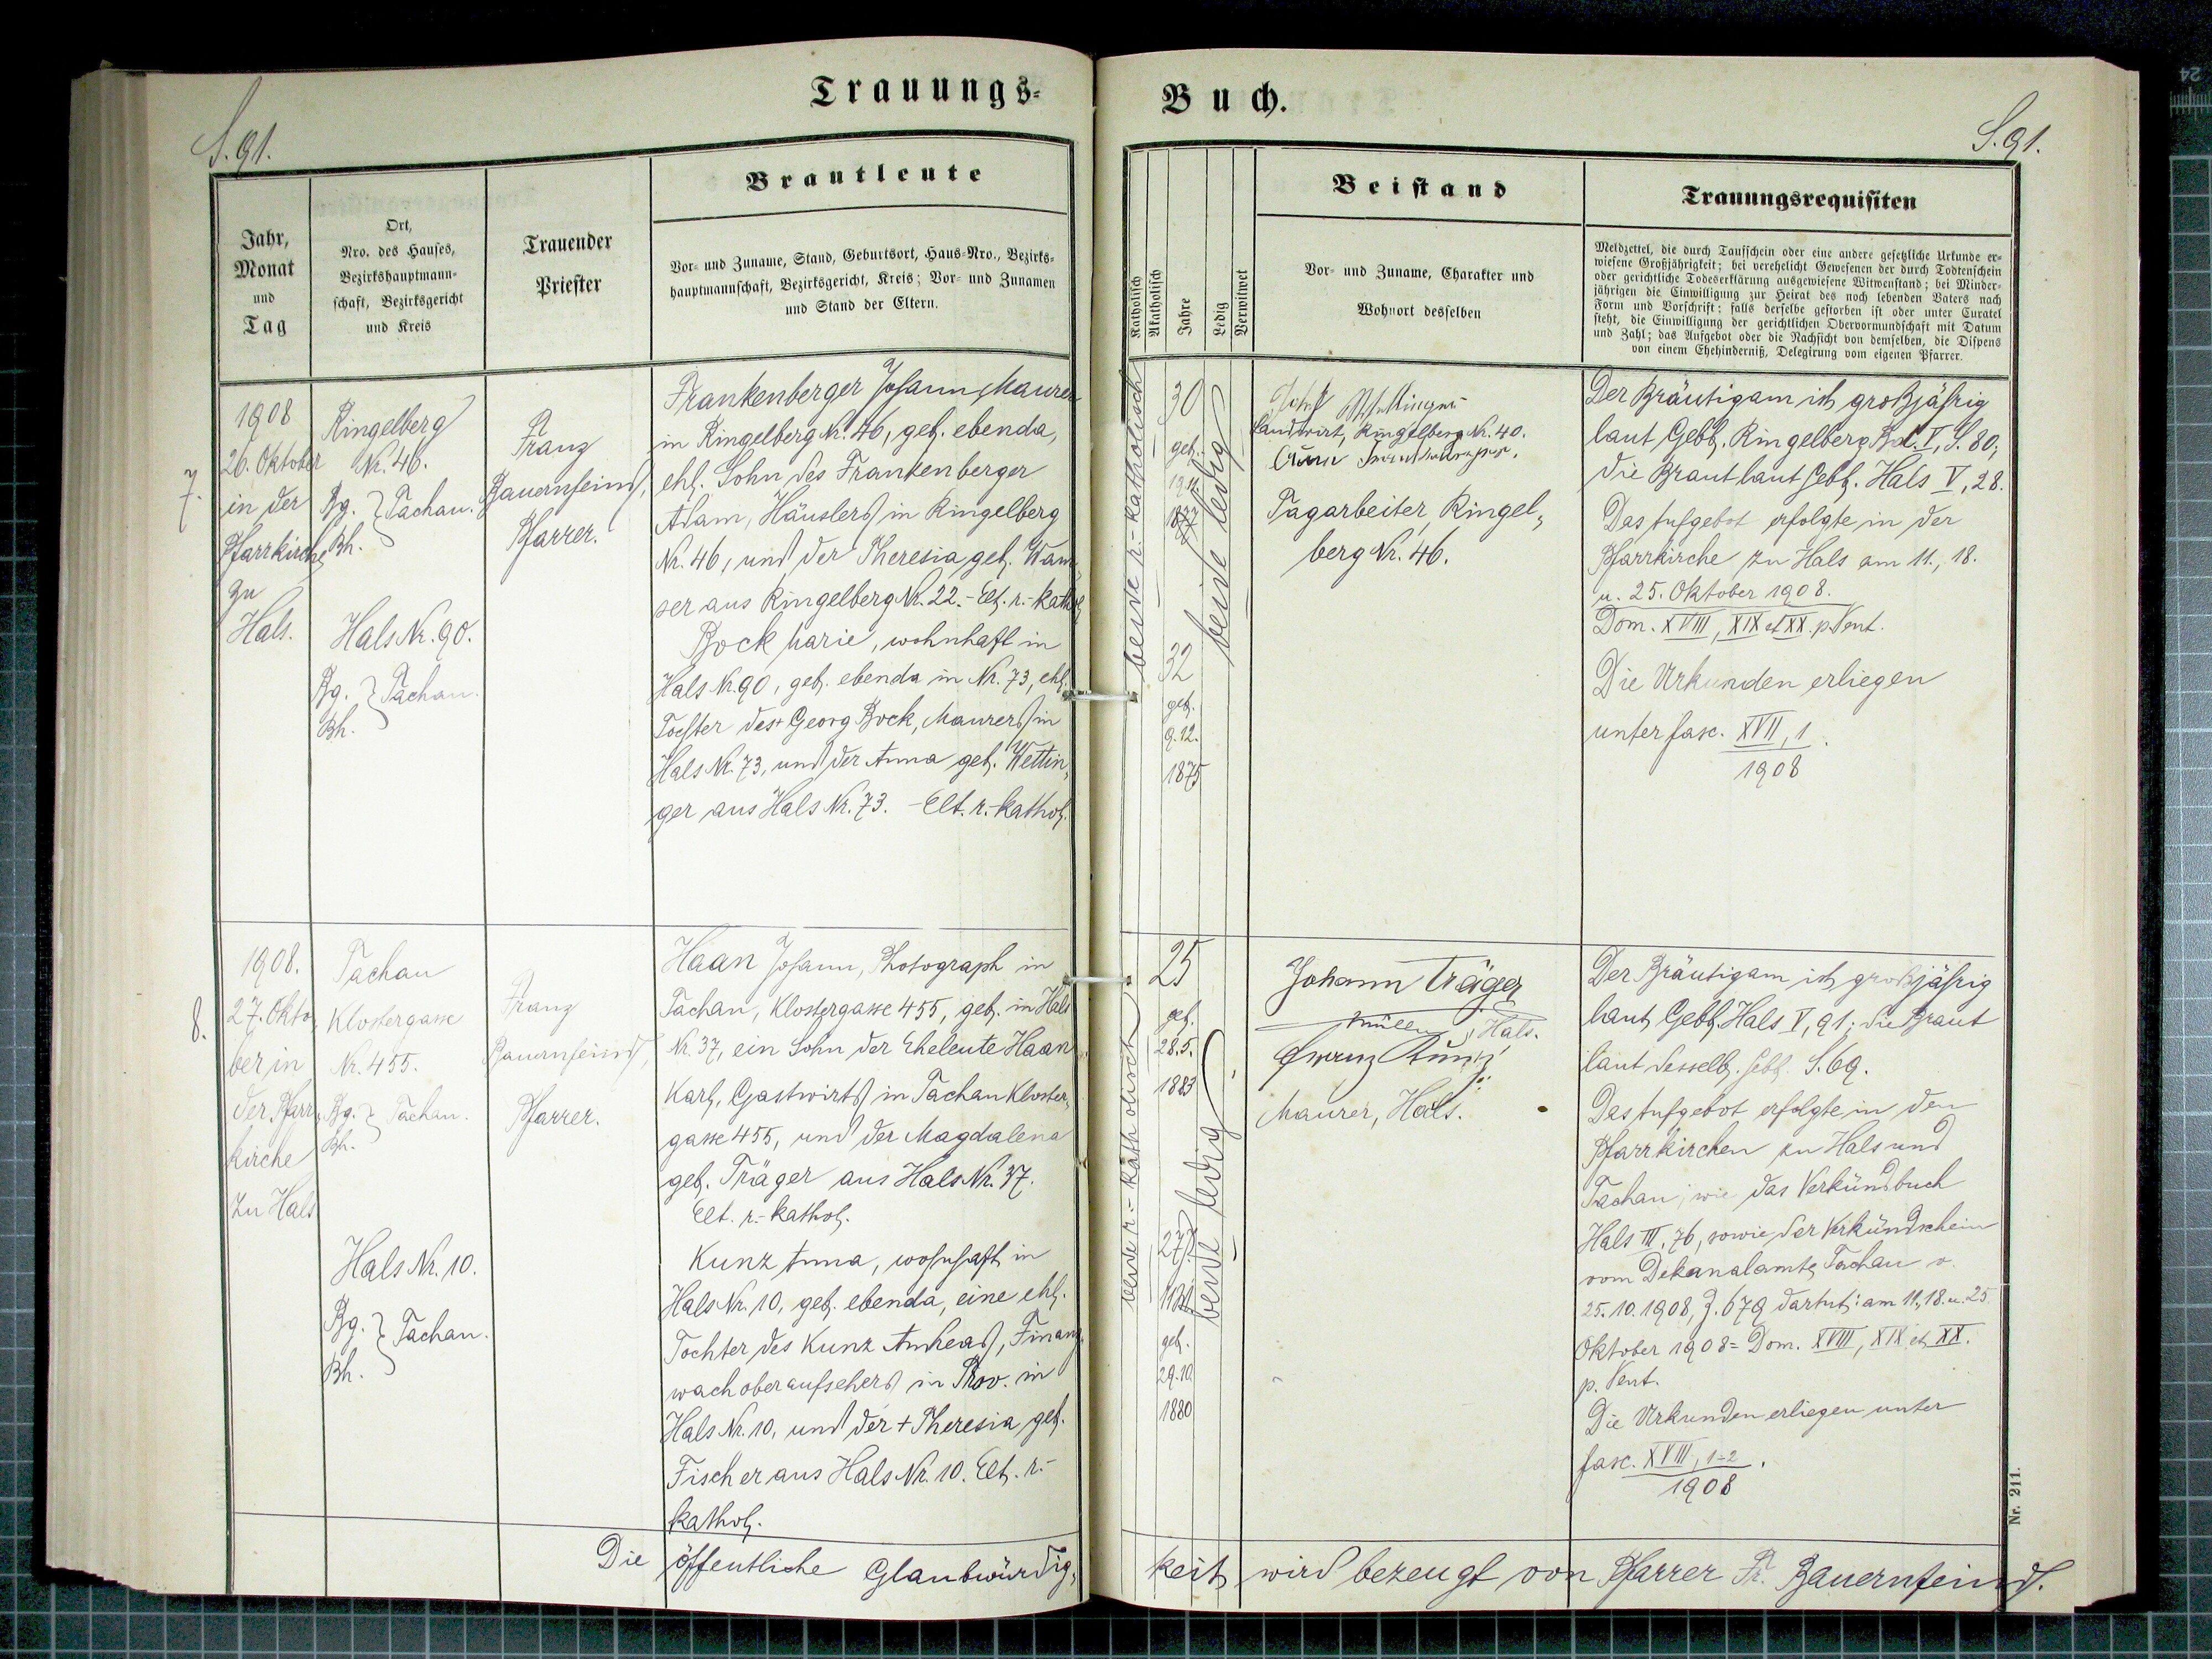 Trauungs-
Buch.
S. 91.
S. 91.
Jahr,
Monat
und
Tag
Ort,
Nro. des Hauses,
Bezirkshauptmann-
schaft, Bezirksgericht
und Kreis
Trauender
Priester
Brautleute
Vor- und Zuname, Stand, Geburtsort, Haus-Nro., Bezirks-
hauptmannschaft, Bezirksgericht, Kreis; Vor- und Zunamen
und Stand der Eltern.
Katholisch
Akatholisch
Jahre
Ledig
Verwitwet
Beistand
Vor- und Zuname, Charakter und
Wohnort desselben
Trauungsrequisiten
Meldzettel, die durch Taufschein oder eine andere gesetzliche Urkunde er-
wiesene Großjährigkeit; bei verehelicht Gewesenen der durch Todtenschein
oder gerichtliche Todeserklärung ausgewiesene Witwenstand; bei Minder-
jährigen die Einwilligung zur Heirat des noch lebenden Vaters nach
Form und Vorschrift; falls derselbe gestorben ist oder unter Curatel
steht, die Einwilligung der gerichtlichen Obervormundschaft mit Datum
und Zahl; das Aufgebot oder die Nachsicht von demselben, die Dispens
von einem Ehehinderniß, Delegirung vom eigenen Pfarrer.
7.
1908
26. Oktober
in der
Pfarrkirche
zu
Hals.
Ringelberg
Nr. 46.
Bg. } Tachau.
Bh.
Hals Nr. 90.
Bg. } Tachau.
Bh.
Franz
Bauernfeind,
Pfarrer.
Frankenberger Johann, Maurer
in Ringelberg Nr. 46, geb. ebenda,
ehl. Sohn des Frankenberger
Adam, Häuslers in Ringelberg
Nr. 46, und der Theresia geb. Wam-
ser aus Ringelberg Nr. 22. - Elt. r.-kathol.
Bock Marie, wohnhaft in
Hals Nr. 90, geb. ebenda in Nr. 73, ehl.
Tochter des + Georg Bock, Maurers in
Hals Nr. 73, und der Anna geb. Wettin-
ger aus Hals Nr. 73. - Elt. r.-kathol.
beide r.-katholisch
30
geb.
1877
32
geb.
9.12.
1875
beide ledig
Josef
Landwirt, Ringelberg Nr. 40.
Tagarbeiter, Ringel-
berg Nr. 46.
Der Bräutigam ist großjährig
laut Gebb. Ringelberg Bd. I, S. 80;
die Braut laut Gebb. Hals V, 28.
Das Aufgebot erfolgte in der
Pfarrkirche zu Hals am 11., 18.
u. 25. Oktober 1908.
Dom. XVIII, XIX et XX. p. Pent.
Die Urkunden erliegen
unter fasc. XVII, 1.
1908
8.
1908.
27. Okto-
ber in
der Pfarr-
kirche
zu Hals
Tachau
Klostergasse
Nr. 455.
Bg. } Tachau.
Bh.
Hals Nr. 10.
Bg. } Tachau.
Bh.
Franz
Bauernfeind,
Pfarrer.
Haan Johann, Photograph in
Tachau, Klostergasse 455, geb. in Hals
Nr. 37, ein Sohn der Eheleute Haan
Karl, Gastwirts in Tachau Kloster-
gasse 455, und der Magdalena
geb. Träger aus Hals Nr. 37.
Elt. r.-kathol.
Kunz Anna, wohnhaft in
Hals Nr. 10, geb. ebenda, eine ehl.
Tochter des Kunz Andreas, Finanz-
wachoberaufsehers in Prov. in
Hals Nr. 10, und der + Theresia geb.
Fischer aus Hals Nr. 10. Elt. r.-
kathol.
beide r.-katholisch
25
geb.
28.5.
1883
27 J.
11 M.
geb.
29.10.
1880
beide ledig
Johann Träger
Müller, Hals.
Franz Kunz
Maurer, Hals.
Der Bräutigam ist großjährig
laut Gebb. Hals V, 91; die Braut
laut desselb. Gebb. S. 69.
Das Aufgebot erfolgte in den
Pfarrkirchen zu Hals und
Tachau, wie das Verkündbuch
Hals III, 76, sowie der Verkündschein
vom Dekanalamte Tachau v.
25.10.1908, Z. 679 dartut: am 11., 18. u. 25.
Oktober 1908 = Dom. XVIII, XIX et XX.
p. Pent.
Die Urkunden erliegen unter
fasc. XVIII, 1-2.
1908
Die öffentliche Glaubwürdig-
keit wird bezeugt von Pfarrer Fr. Bauernfeind.
Nr. 211.
24